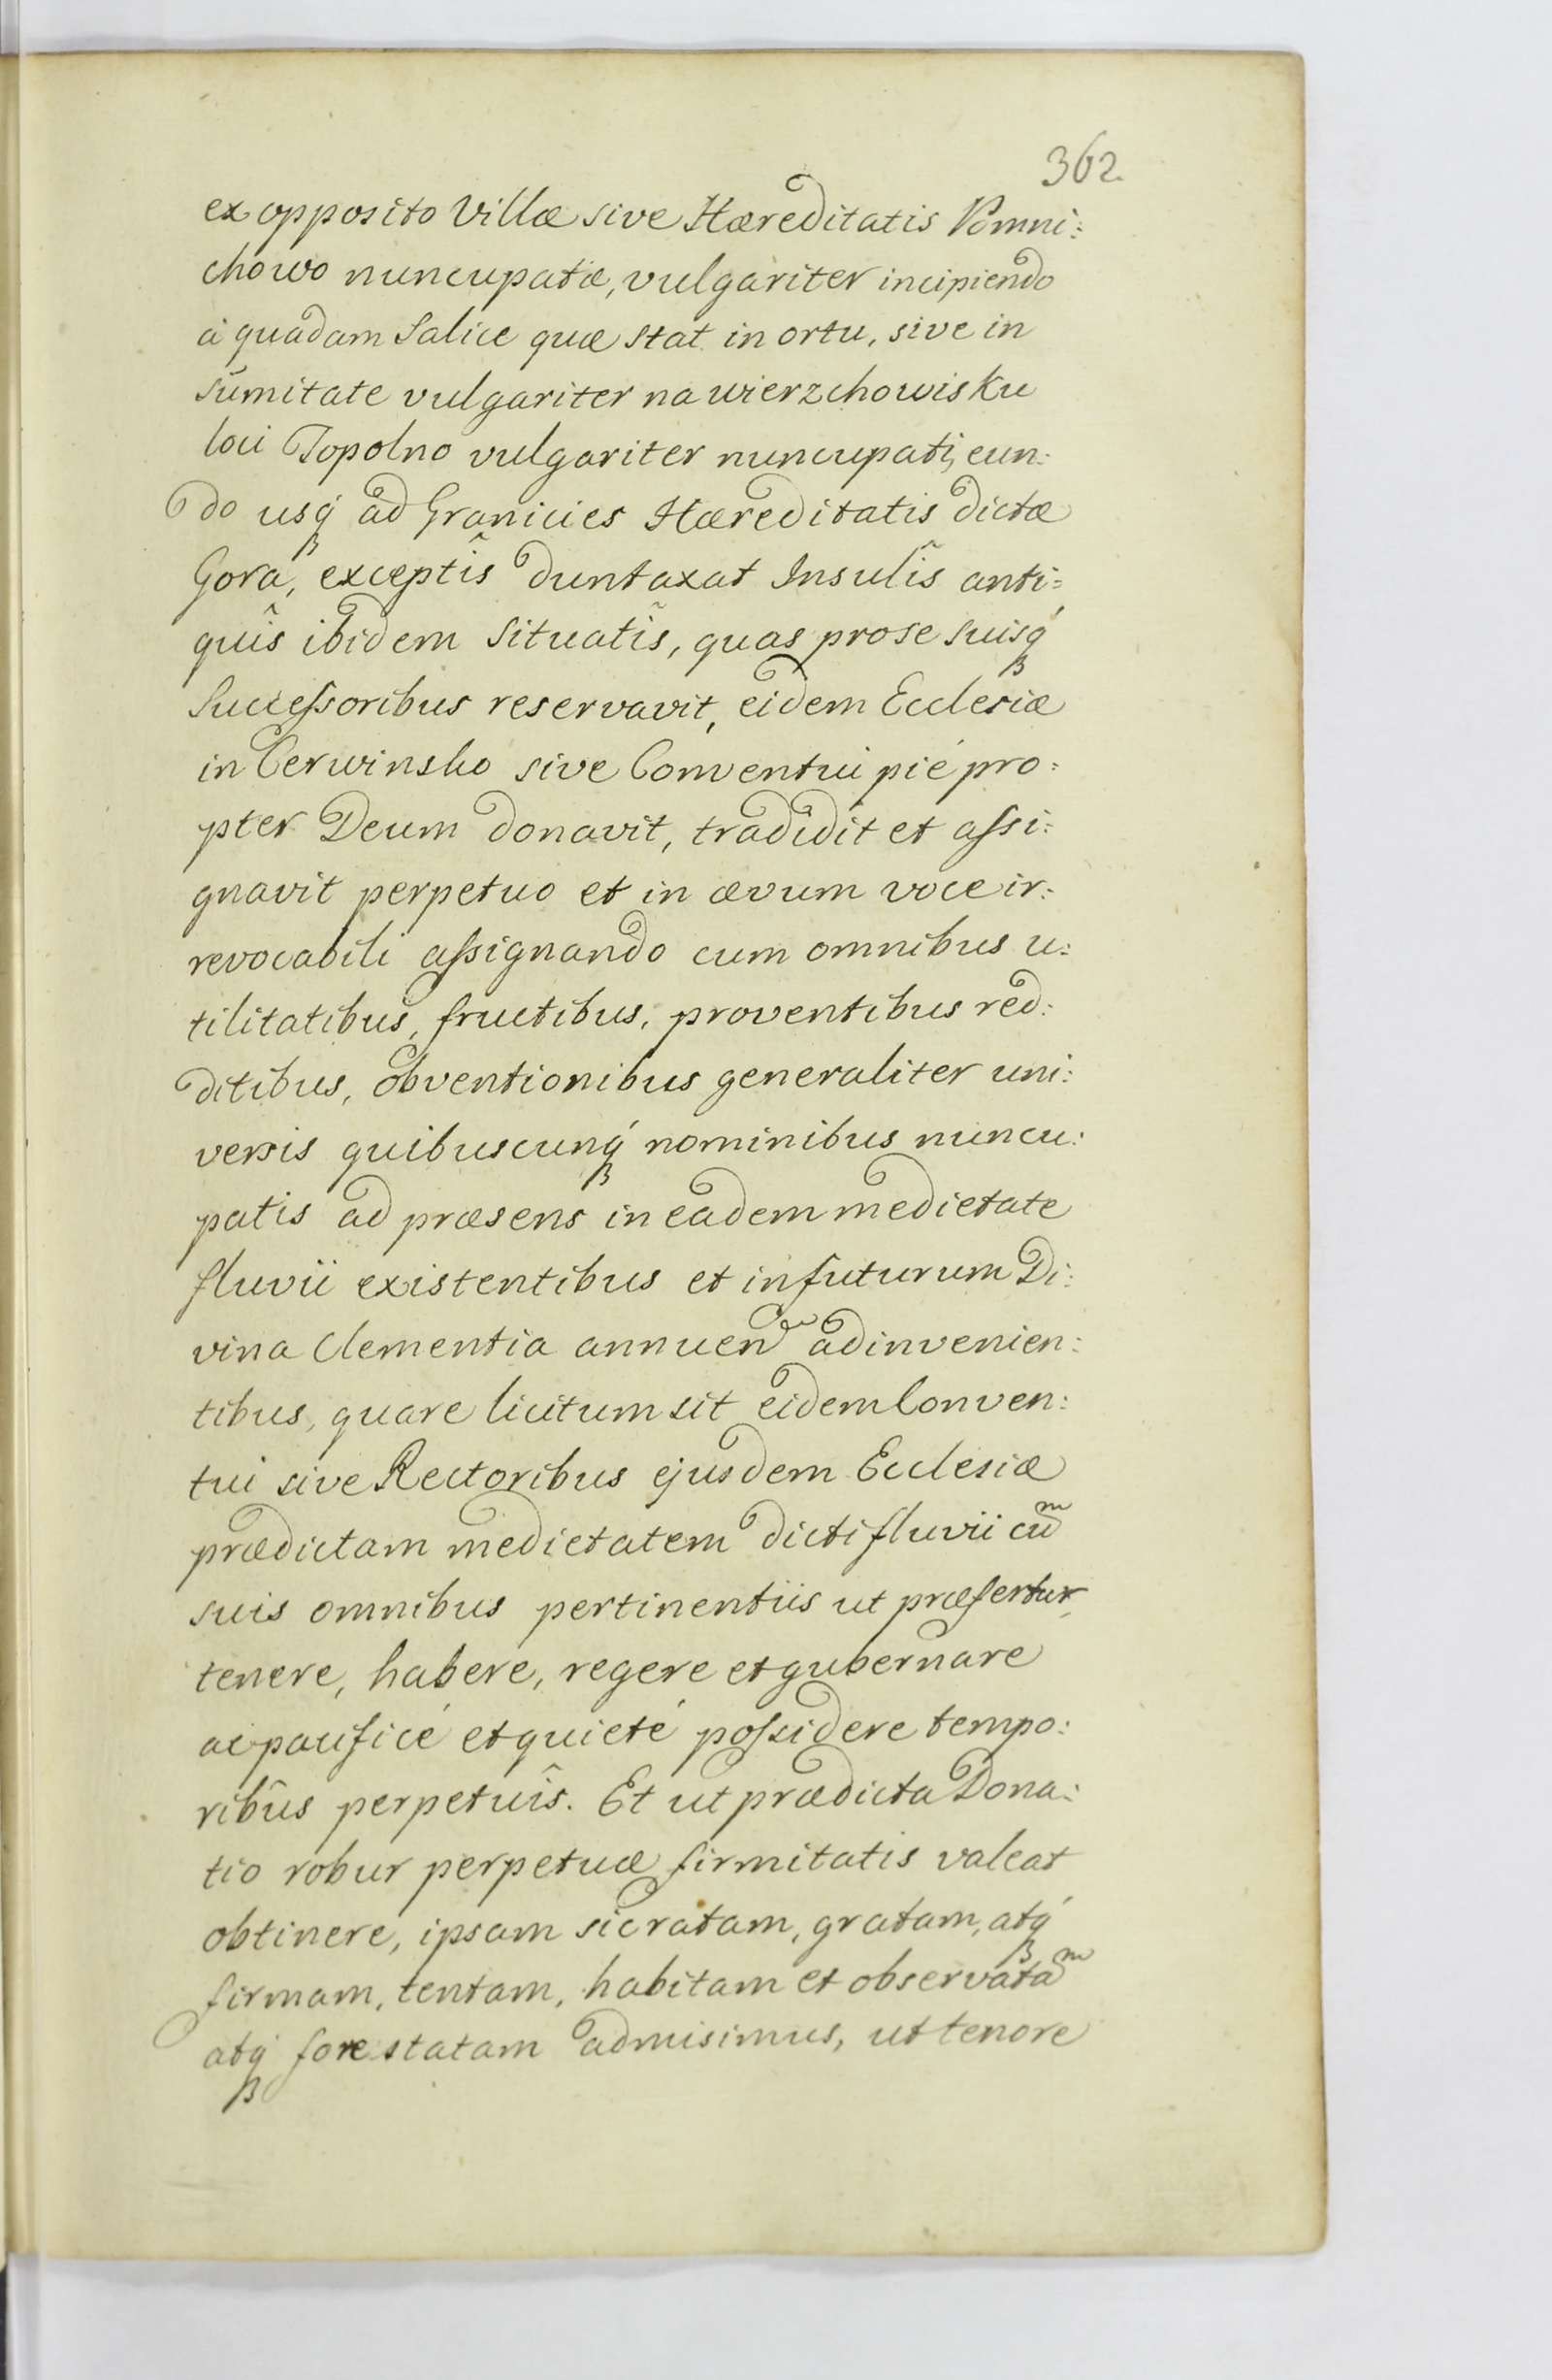 362
ex opposito Villæ sive Hæreditatis Pomni:
chowo nuncupatæ, vulgariter incipiendo
à quadam Salice quæ stat in ortu, sive in
sum̃itate vulgariter na wierzchowisku
loci Topolno vulgariter nuncupati, eun:
do usq́ꝫ ad Granicies Hæreditatis dictæ
Gora, exceptis̃ duntaxat Insulis̃ anti=
quis̃ ibidem situatis̃, quas pro se suisq́ꝫ
Succeſsoribus reservavit, eidem Ecclesiæ
in Cerwinsko sive Conventui pié pro:
pter Deum donavit, tradidit et aſsi:
gnavit perpetuo et in ævum voce ir:
revocabili aſsignando cum omnibus u:
tilitatibus, fructibus, proventibus red:
ditibus, obventionibus generaliter uni:
versis quibuscunq́ꝫ nominibus nuncu:
patis ad præsens in eadem medietate
fluvii existentibus et in futurum Di:
vina Clementia annuenᵈᵉ adinvenien:
tibus, quare licitum sit eidem Conven:
tui sive Rectoribus ejusdem Ecclesiæ
prædictam medietatem dicti fluvii cuᵐ
suis omnibus pertinentiis ut præfertur,
tenere, habere, regere et gubernare
ac pacificé et quieté poſsidere tempo:
ribus̃ perpetuis̃. Et ut prædicta Dona:
tio robur perpetuæ firmitatis valeat
obtinere, ipsam sic ratam, gratam, atq́ꝫ
firmam, tentam, habitam et observataᵐ
atq́ꝫ fore statam admisimus, ut tenore